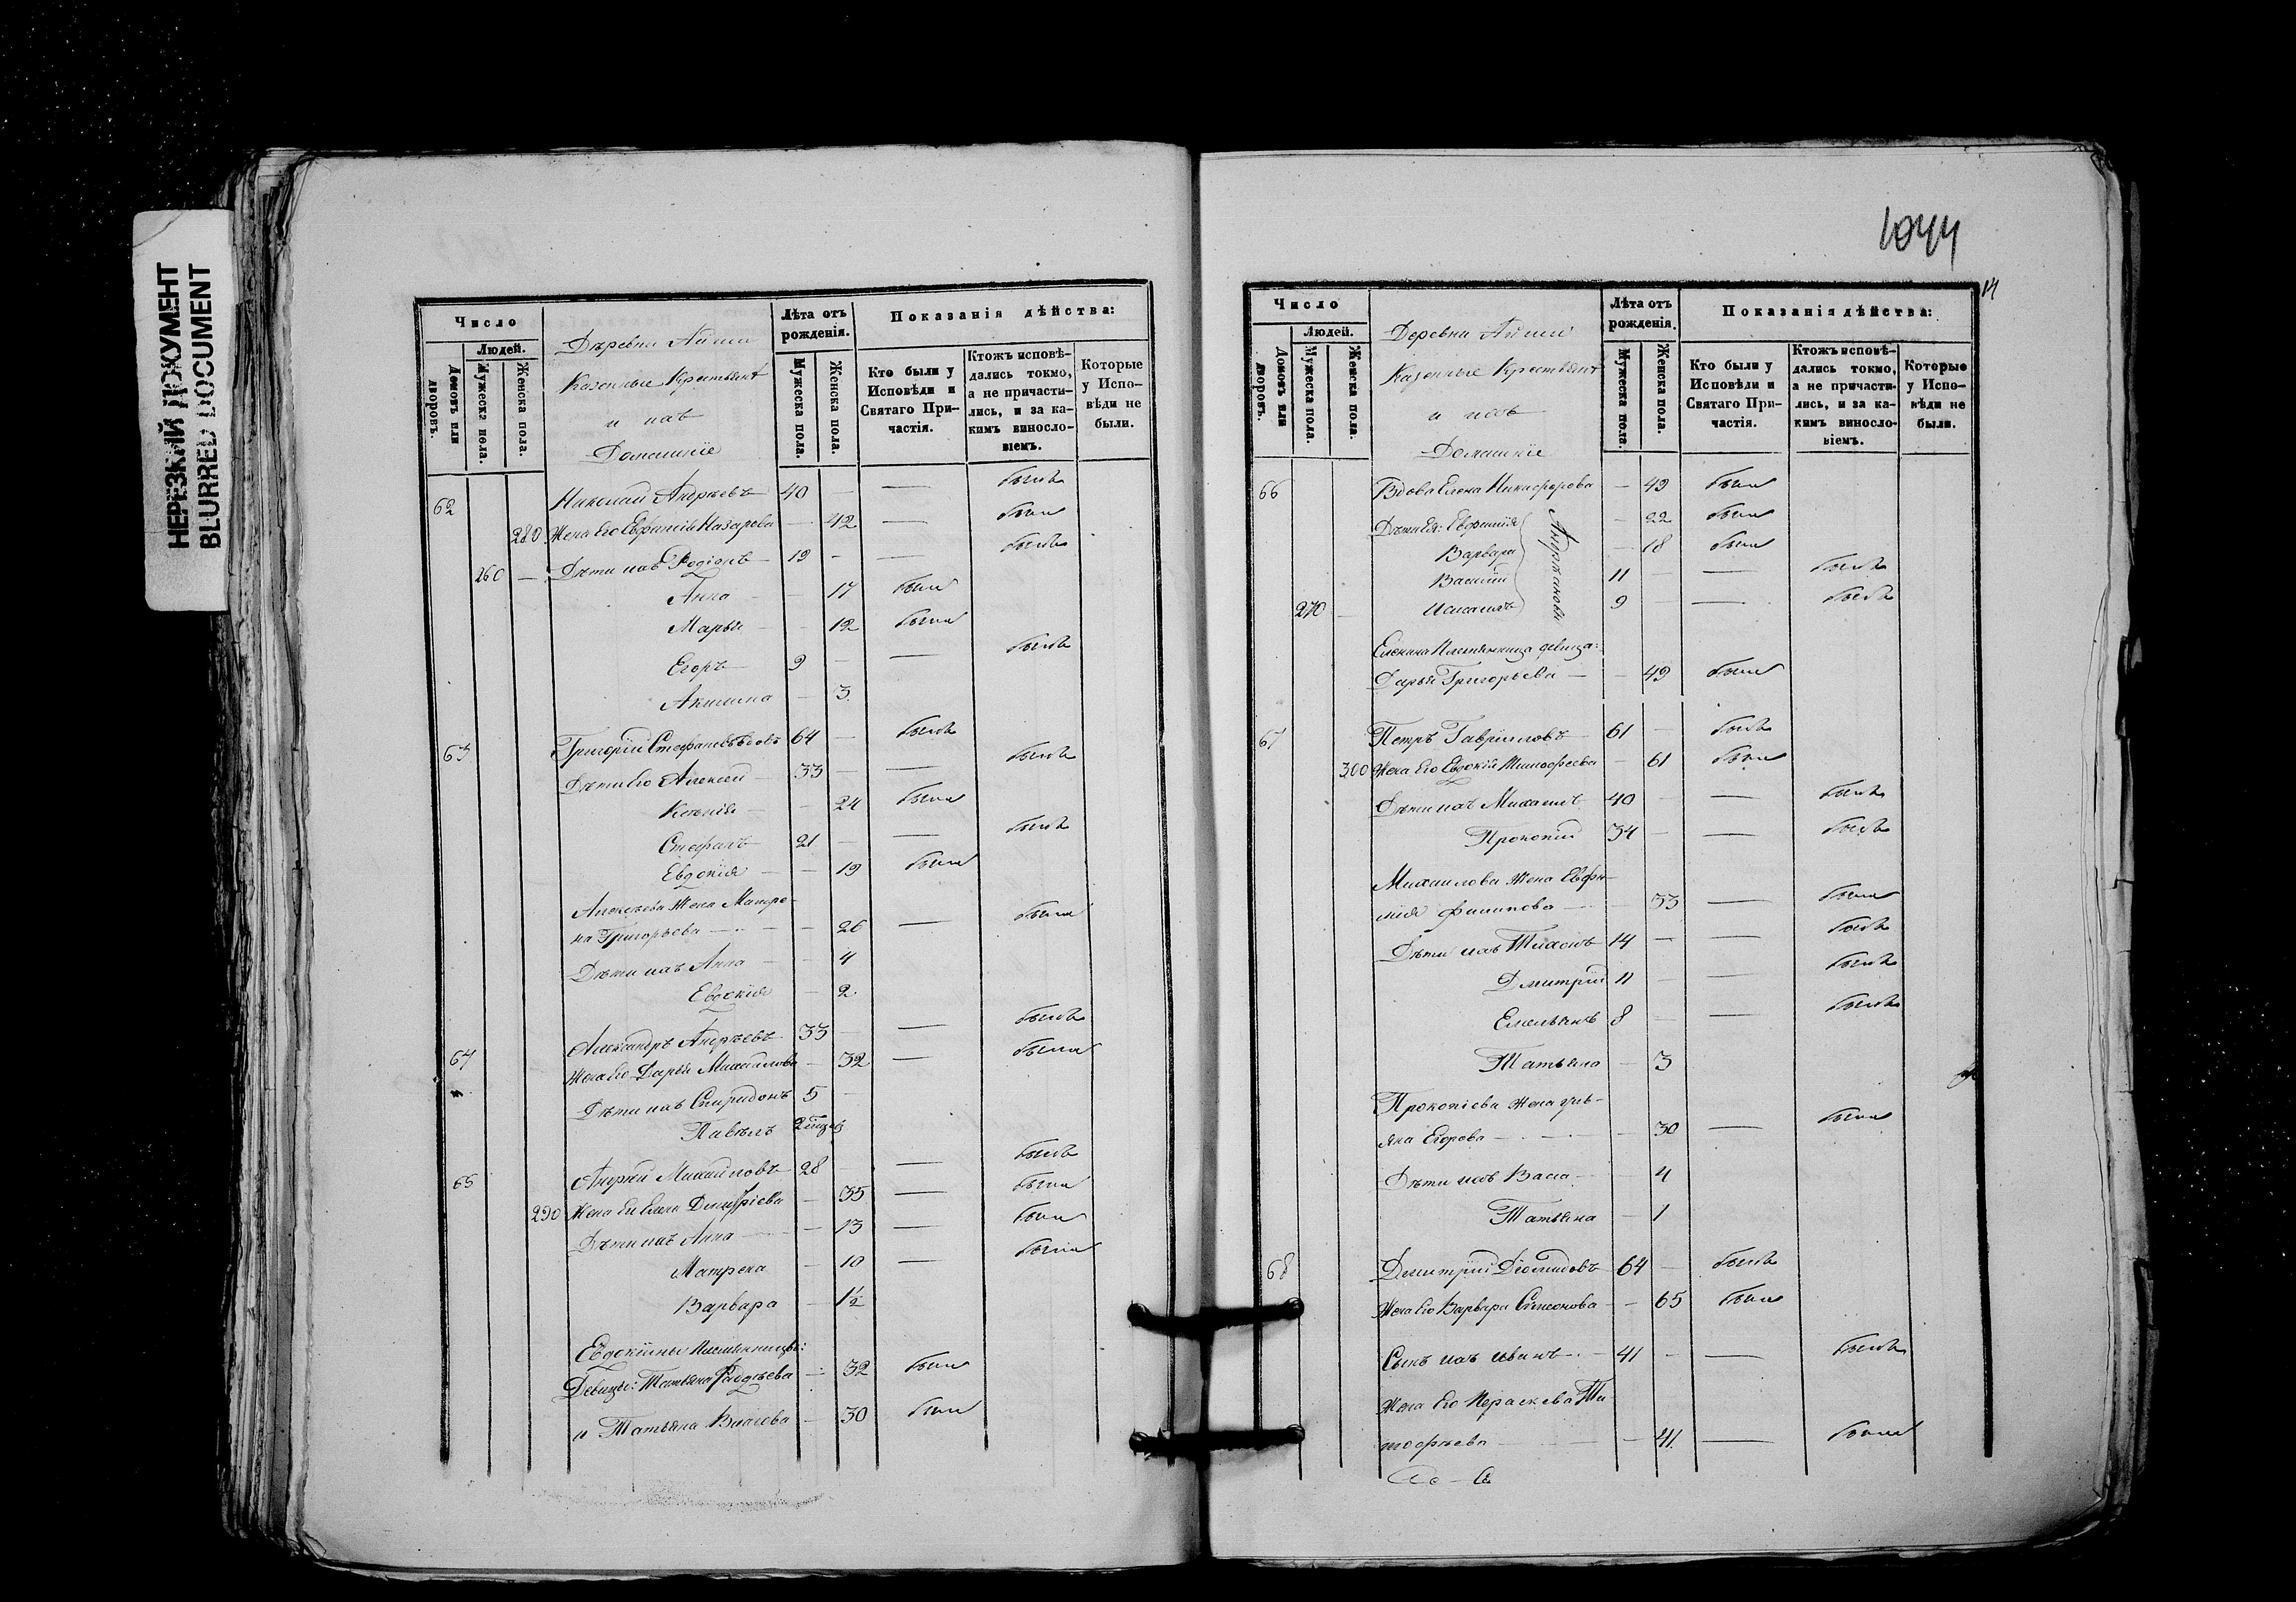 НЕРЕЗКИЙ ДОКУМЕНТ
BLURRED DOCUMENT
Число
Людей.
Домовъ или дворовъ.
Мужеска пола.
Женска пола.
Деревни Айши
Казенные Крестьяне
и ихъ
Домашніе
Лѣта отъ рожденія.
Мужеска пола.
Женска пола.
Показанія дѣйства:
Кто были у Исповѣди и Святаго Причастія.
Ктожъ исповѣдались токмо, а не причастились, и за какимъ винословіемъ.
Которые у Исповѣди не были.
62 Николай Андреевъ 40 — — былъ
280 Жена его Евфимія Назарова — 42 — была
260 — Дѣти ихъ Родіонъ 19 — — былъ
Анна — — 17 была
Марья — — 12 была
Егоръ 9 — — былъ
Акилина — 3
63 Григорій Стефановъ вдовъ 64 — былъ
Дѣти его Алексей 33 — — былъ
Ксенія — — 24 была
Стефанъ 21 — — былъ
Евдокія — — 19 была
Алексѣева жена Матре-
на Григорьева — — 26 — была
Дѣти ихъ Анна — — 4
Евдокія — 2
64 Александръ Андреевъ 33 — — былъ
Жена его Дарья Михайлова — 32 — была
Дѣти ихъ Спиридонъ 5 —
Павелъ
65 Андрей Михайловъ 28 — — былъ
290 Жена его Елена Димитріева — 35 — была
Дѣти ихъ Анна — 13 — была
Матрена — 10 — была
Варвара — 1½
Евдокіины племянницы:
Девицы: Татьяна — 32 была
и Татьяна Власова — 30 была
1044
14
Число
Людей.
Домовъ или дворовъ.
Мужеска пола.
Женска пола.
Деревни Айши
Казенные Крестьяне
и ихъ
Домашніе
Лѣта отъ рожденія.
Мужеска пола.
Женска пола.
Показанія дѣйства:
Кто были у Исповѣди и Святаго Причастія.
Ктожъ исповѣдались токмо, а не причастились, и за какимъ винословіемъ.
Которые у Исповѣди не были.
66 Вдова Елена Никифорова — 49 была
Дѣти Ея: Евфимія — 22 была
Варвара — 18 была
Василій 11 — — былъ
270 — 9 — — былъ
Еленина Племянница девица:
Дарья Григорьева — — 49 была
67 Петръ Гавриловъ 61 — былъ
300 Жена его Евдокія Тимофеева — 61 была
Дѣти ихъ Михаилъ 40 — — былъ
Прокопій 34 — — былъ
Михаилова жена Евфи-
мія Филипова — 33 — была
Дѣти ихъ Тихонъ 14 — — былъ
Дмитрій 11 — — былъ
Емельянъ 8 — — былъ
Татьяна — 3
Прокопіева жена Улья-
яна Егорова — — 30 — была
Дѣти ихъ Васса — 4
Татьяна — 1
68 Дмитрій Діомидовъ 64 — былъ
Жена его Варвара Симеонова — 65 была
Сынъ ихъ Иванъ — 41 — — былъ
Жена его Параскева Ти-
мофѣева — 41 — была